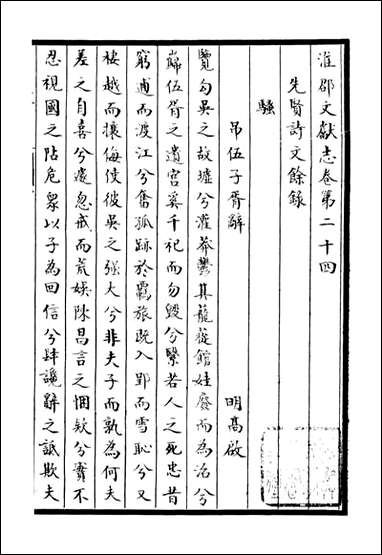 淮郡文獻志卷第二十四
先賢詩文餘錄
騷
弔伍子胥辭 明高啟
覽勾吳之故墟兮灌莽鬱其蘢蓯館娃廢而為沼兮
巋伍胥之遺宮奚千祀而勿毀兮繄若人之死忠昔
窮逋而渡江兮奮孤跡於羈旅既入郢而雪恥兮又
棲越而攘侮使彼吳之强大兮非夫子而孰為何夫
差之自喜兮遽忽戒而荒娛陳昌言之悃欵兮實不
忍視國之阽危衆以子為回信兮肆讒辭之詆欺夫